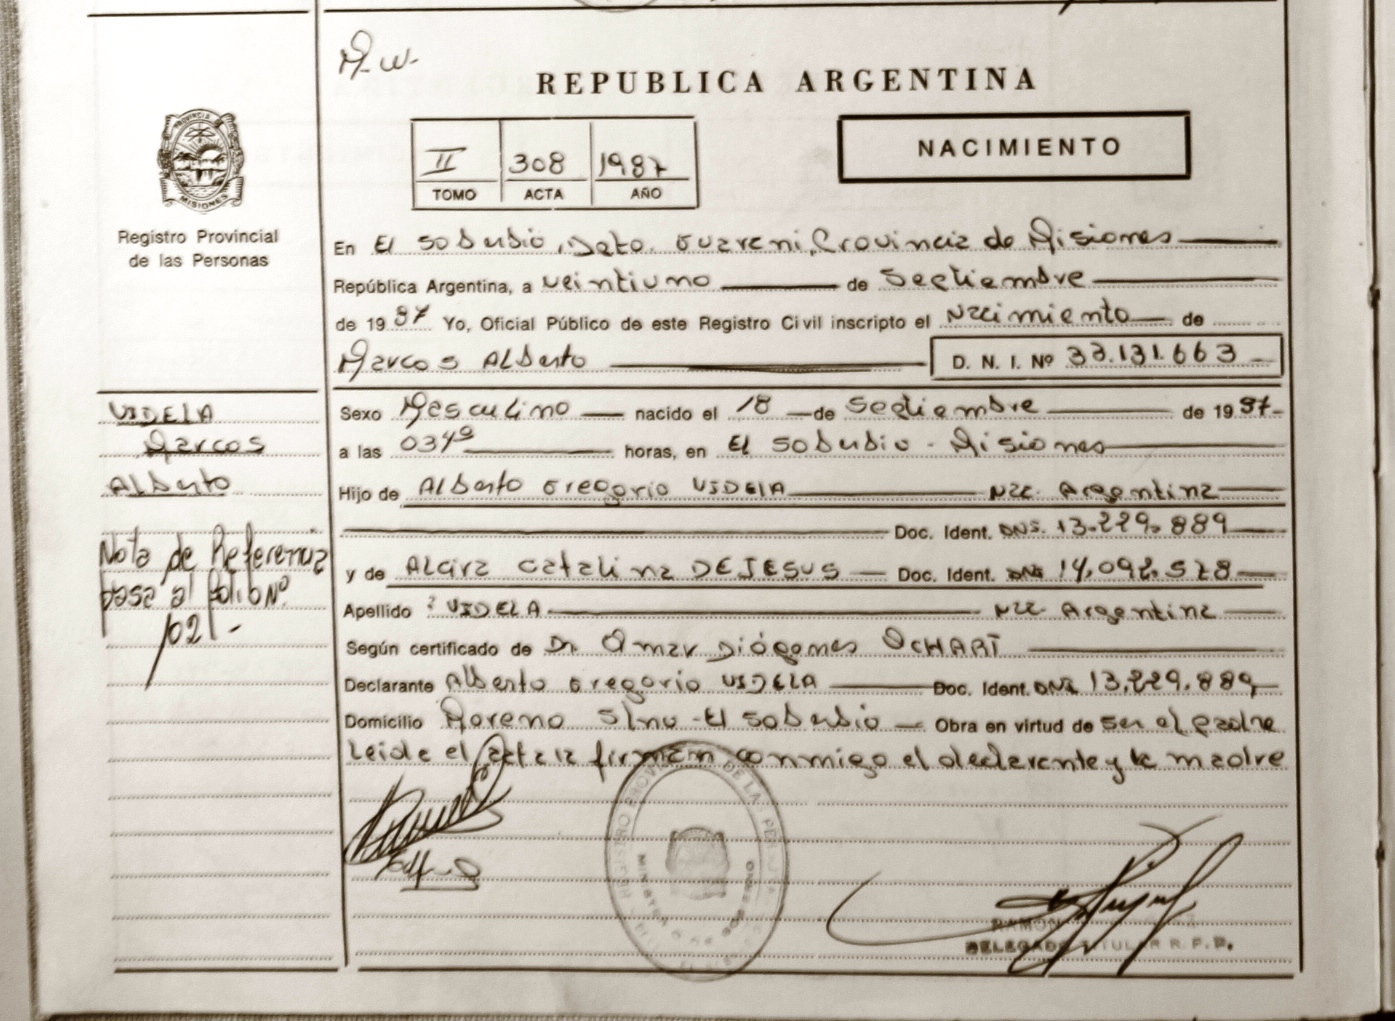 M. W.
REPUBLICA ARGENTINA
PROVINCIA
MISIONES
II 308 1987
TOMO ACTA AÑO
NACIMIENTO
Registro Provincial
de las Personas
En El Soberbio, Dpto. Guarani, Provincia de Misiones
República Argentina, a veintiuno de Septiembre
de 1987 Yo, Oficial Público de este Registro Civil inscripto el Nacimiento de
Marcos Alberto D. N. I. Nº 33.131.663
VIDELA
Marcos
Alberto
Nota de Referencia
pasa al folio Nº
102 -
Sexo Masculino nacido el 18 de Septiembre de 1987-
a las horas, en El Soberbio - Misiones
Hijo de Alberto Gregorio VIDELA Nac. Argentina
Doc. Ident. DNI. 13.229.889
y de Alcira Catalina DEJESUS Doc. Ident. DNI 14.092.528
Apellido : VIDELA Nac. Argentina
Según certificado de Dr. Omar Diógenes OCHART
Declarante Alberto Gregorio VIDELA Doc. Ident. DNI 13.229.889
Domicilio Moreno S/nu - El Soberbio Obra en virtud de ser el padre
Leida el acta la firman conmigo el declarante y la madre
REGISTRO PROVINCIAL DE LAS PERSONAS
MINISTERIO DE GOBIERNO
RAMON
DELEGADO TITULAR R. P. P.